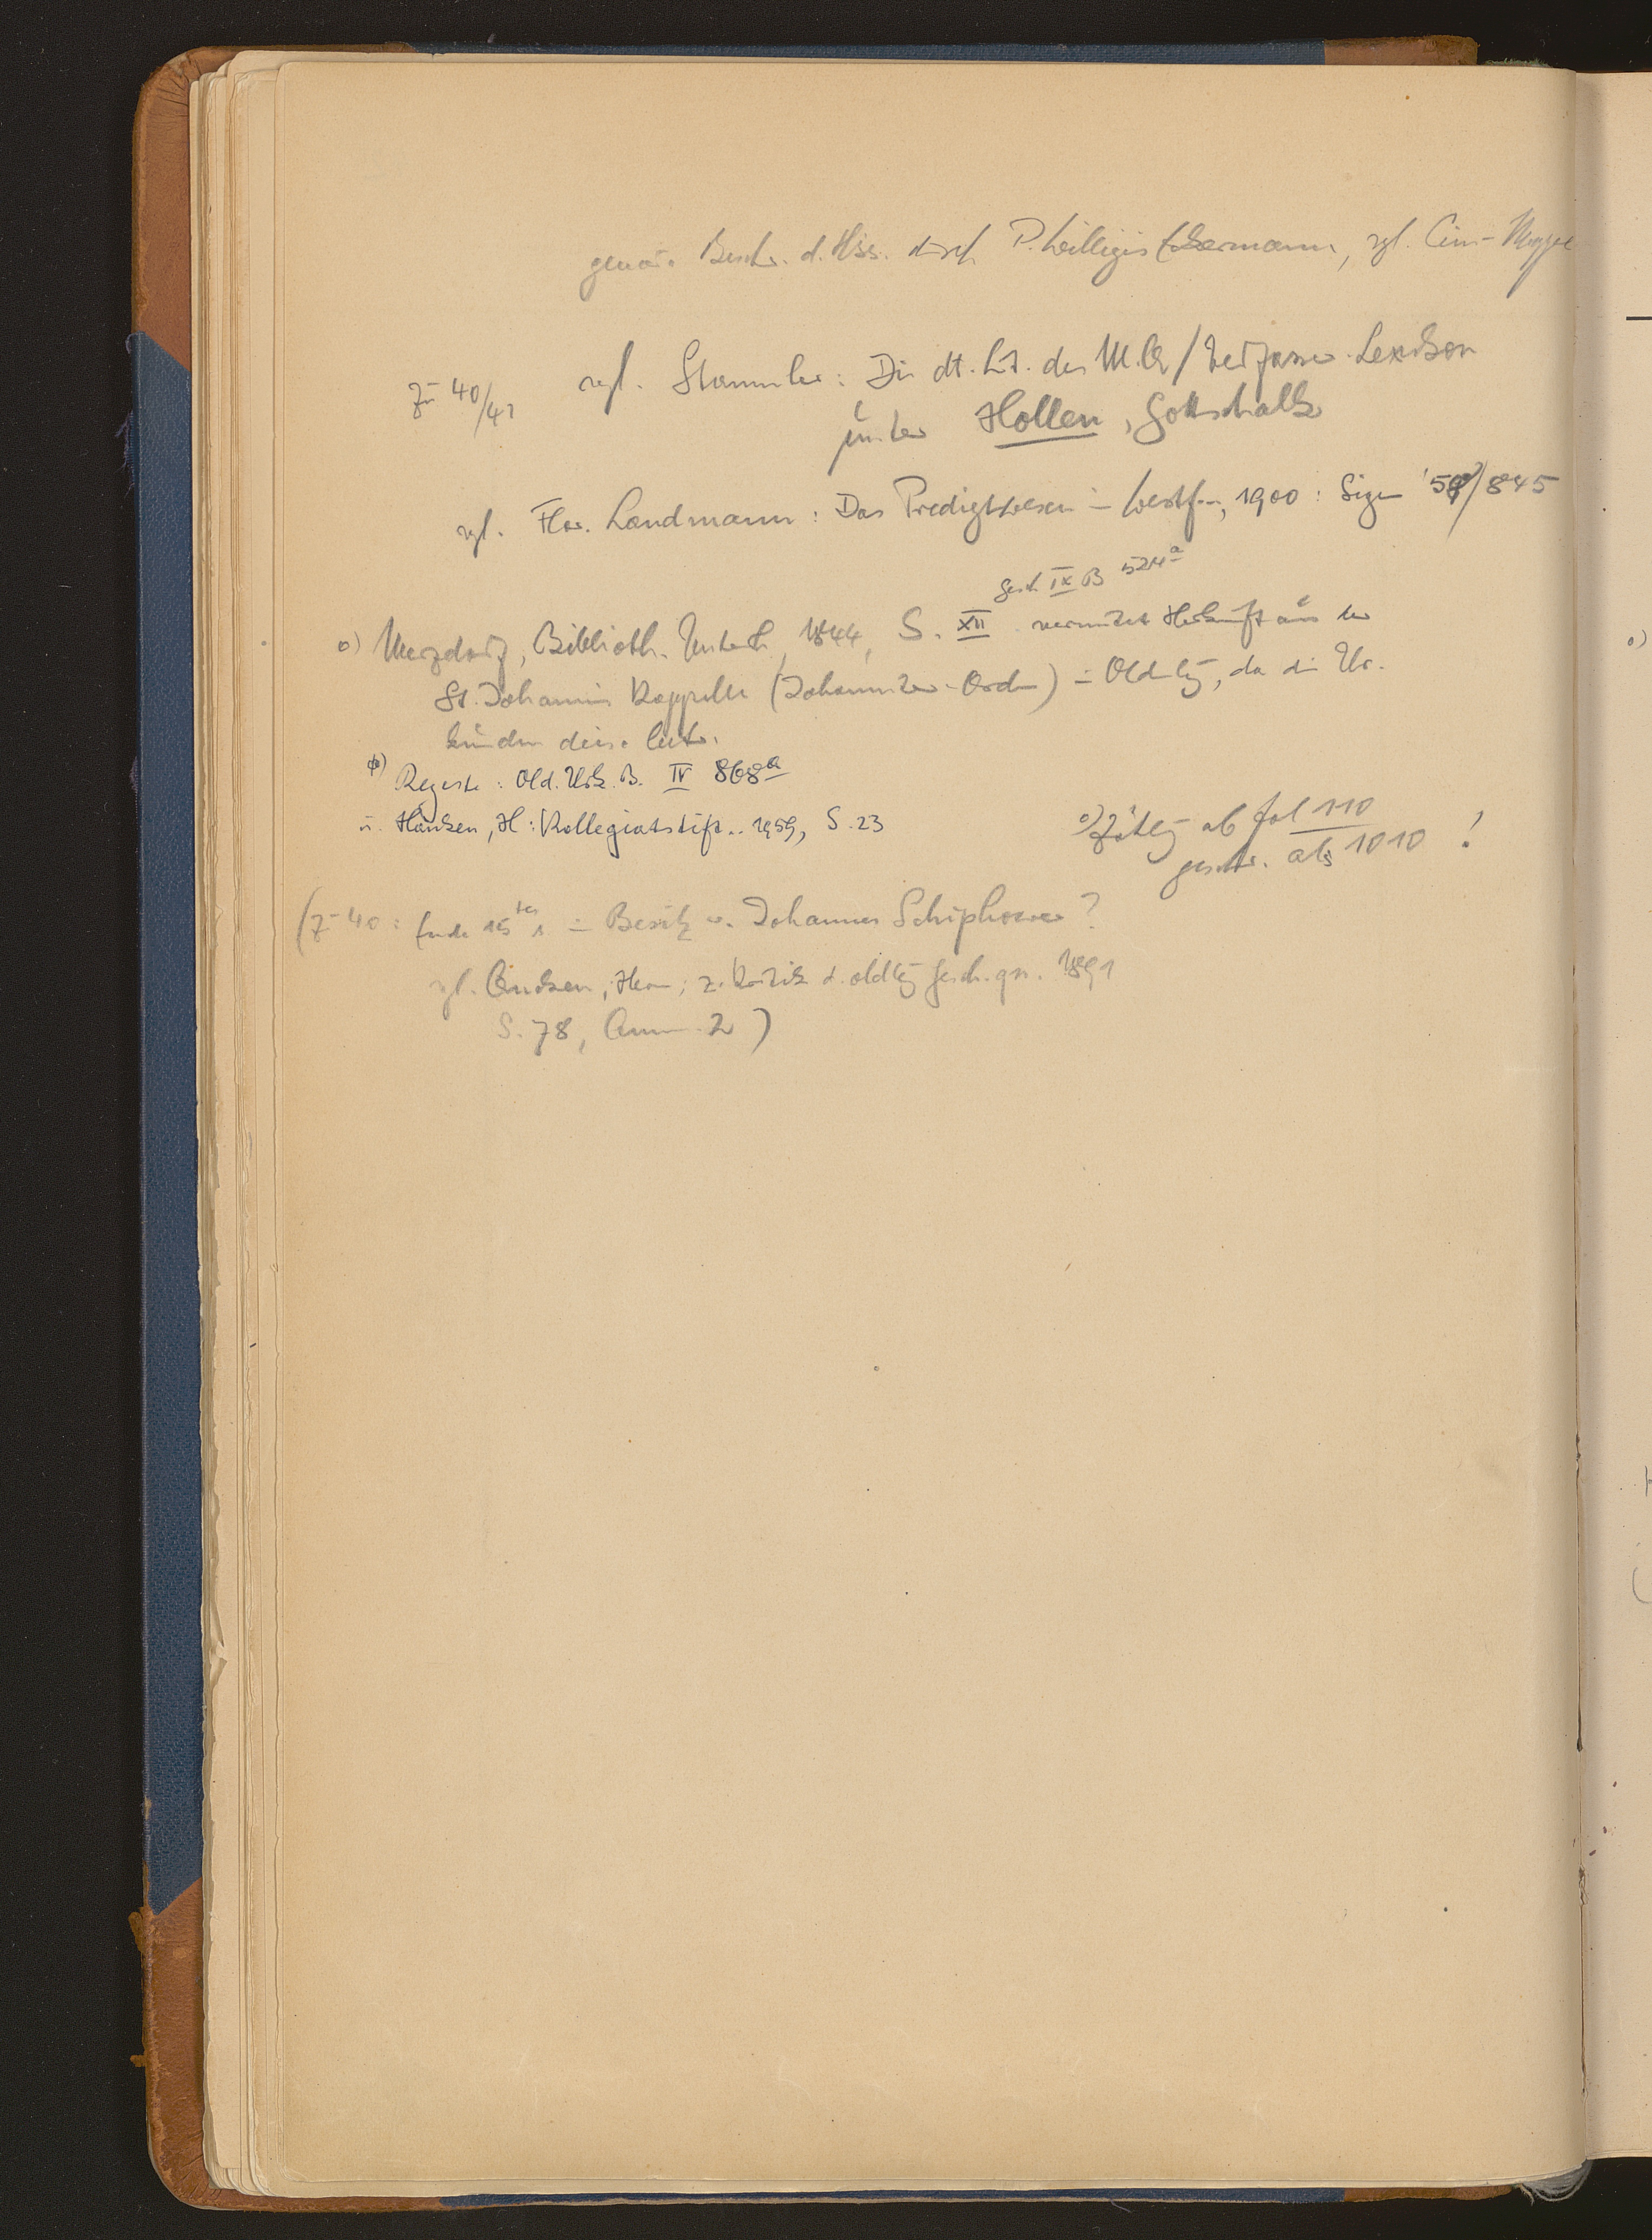 genaue Beschr. d. Hss. durch P. Willigis Eckermann, vgl. Cim-Mappe
zu 40/41 vgl. Stammler: Die dt. Lit. des M.A / Verfasser-Lexikon
unter Hollen, Gottschalk
vgl. Flor. Landmann: Das Predigtwesen in Westf..., 1900: Sign /845
Gesch IX B 524a
o) Merzdorf, Biblioth. Unterh, 1844, S. XII vermutet Herkunft aus der
St. Johannis Kappelle (Johanniter-Orden) in Oldbg, da die Ur-
kunden diese betr.
Regeste: Old. Urk. B. IV 868a
u. Hanken, H: Kollegiatstift.. 1959, S. 23
o) Zählg ab fol 110
geschr. als 1010 !
(zu 40: Ende 15tes in Besitz v. Johannes Schiphower?
vgl. Oncken, Herm; z. Kritik d. oldbg Gesch.qn. 1891
S. 78, Anm. 2)